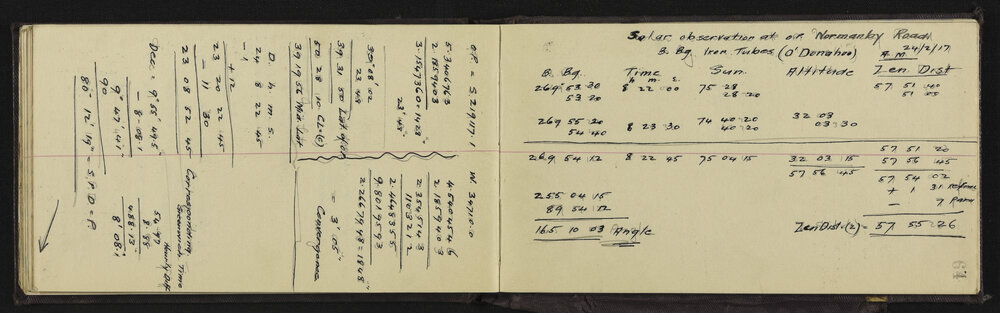 O.P. = S. 219117.1
5.3406763
2.1859403
3.1547360 1428"
23' 48"
35° 08' 02
23 48
39 31 50 Lat of O.P.
50 28 10 CL=(c)
39 19 55 Mid Lat
W. 34710.0
4.5404546
2.1859403
2.3545143
110322
2.4648355
9.8019593
2.2667948 = 184.8"
= 3' 05"
Convergence
D. h m s.
24 8 22 45
-1
+ 12
23 20 22 45
- 11 30
23 08 52 45
Corresponding
Greenwich Time
Dec = 9° 55' 49.5"
- 8 08.1
9° 47' 41"
90
80° 12' 19" = S.P.D = P.
Hourly Diff
54.97
8.88
488.13
8' 08.1
Solar observation at O.P. Normanby Road
B. Bg. Iron Tubes (O'Donahoo) A.M. 24/2/17
B. Bg. Time Sun. Altitude Zen. Dist
h m s.
269 53 30 8 22 00 75 28 57 51 40
53 20 28 20 51 00
269 55 20 8 23 30 74 40 20 32 03
54 40 40 20 03 30
57 51 20
269 54 12 8 22 45 75 04 15 32 03 15 57 56 45
57 56 45 57 54 02
+ 1 31 Refrac
255 04 15 - 7 Parax
89 54 12
165 10 03 Angle Zen Dist. (z) = 57 55 26